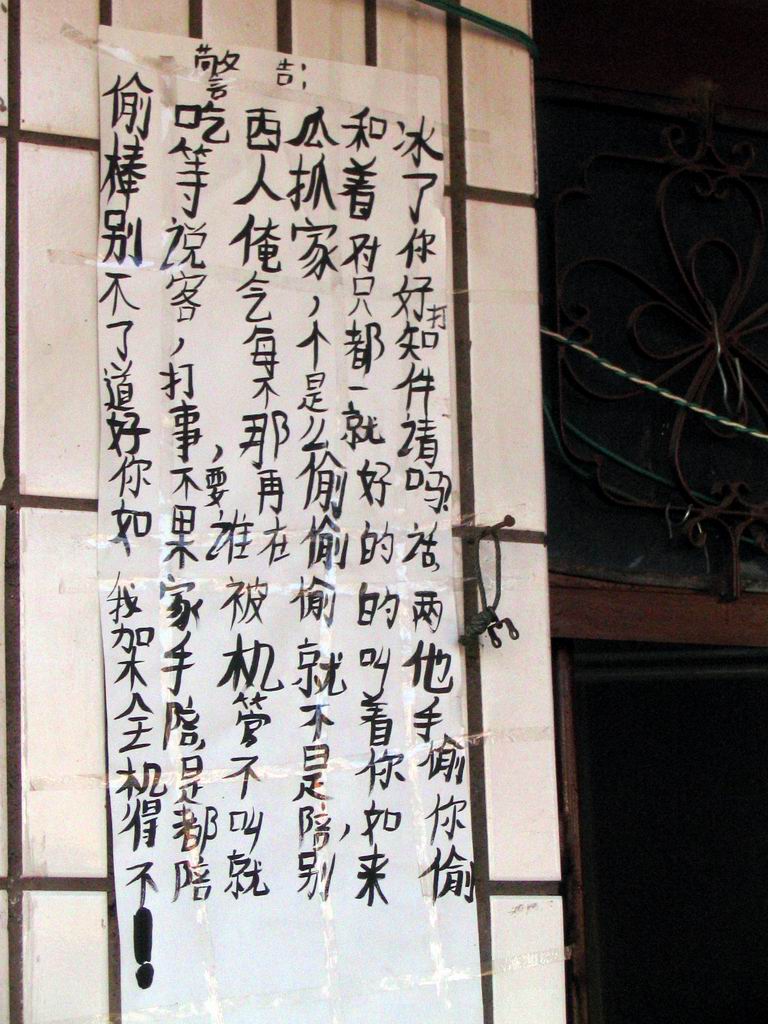 警告:
偷吃西瓜和冰
棒等人抓着了
别说俺家,对你
不客气,只好打
了,每个都知
道打不是一件
好事,那么就请
你不要再偷好吗?
如果谁在偷的话,
我家被偷的两
架手机就叫他
全陪,管不着手
机是不是你偷
得都叫陪,如你
不陪就别来偷
!